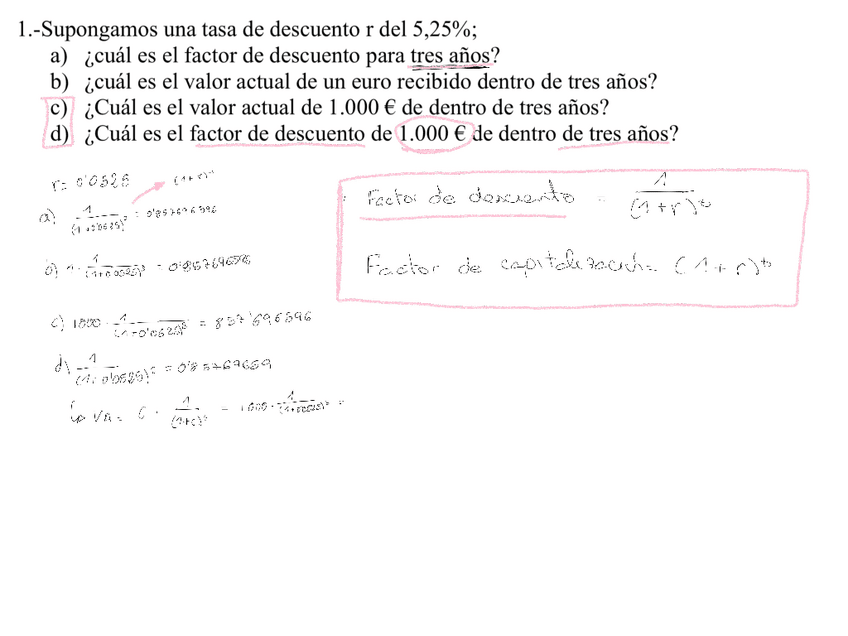 1.-Supongamos una tasa de descuento r del 5,25%;
a) ¿cuál es el factor de descuento para tres años?
b) ¿cuál es el valor actual de un euro recibido dentro de tres años?
c) ¿Cuál es el valor actual de 1.000 € de dentro de tres años?
d) ¿Cuál es el factor de descuento de 1.000 € de dentro de tres años?
r= 0'0525 (1+r)^-t
Factor de descuento = 1/(1+r)^t
a) 1/(1+0'0525)^3 = 0'857696596
b) 1· 1/(1+0'0525)^3 = 0'857696596
Factor de capitalización = (1+r)^t
c) 1000 · 1/(1+0'0525)^3 = 857'696596
d) 1/(1+0'0525)^3 = 0'85769659
VA = C · 1/(1+r)^t = 1000 · 1/(1+0'0525)^3 =